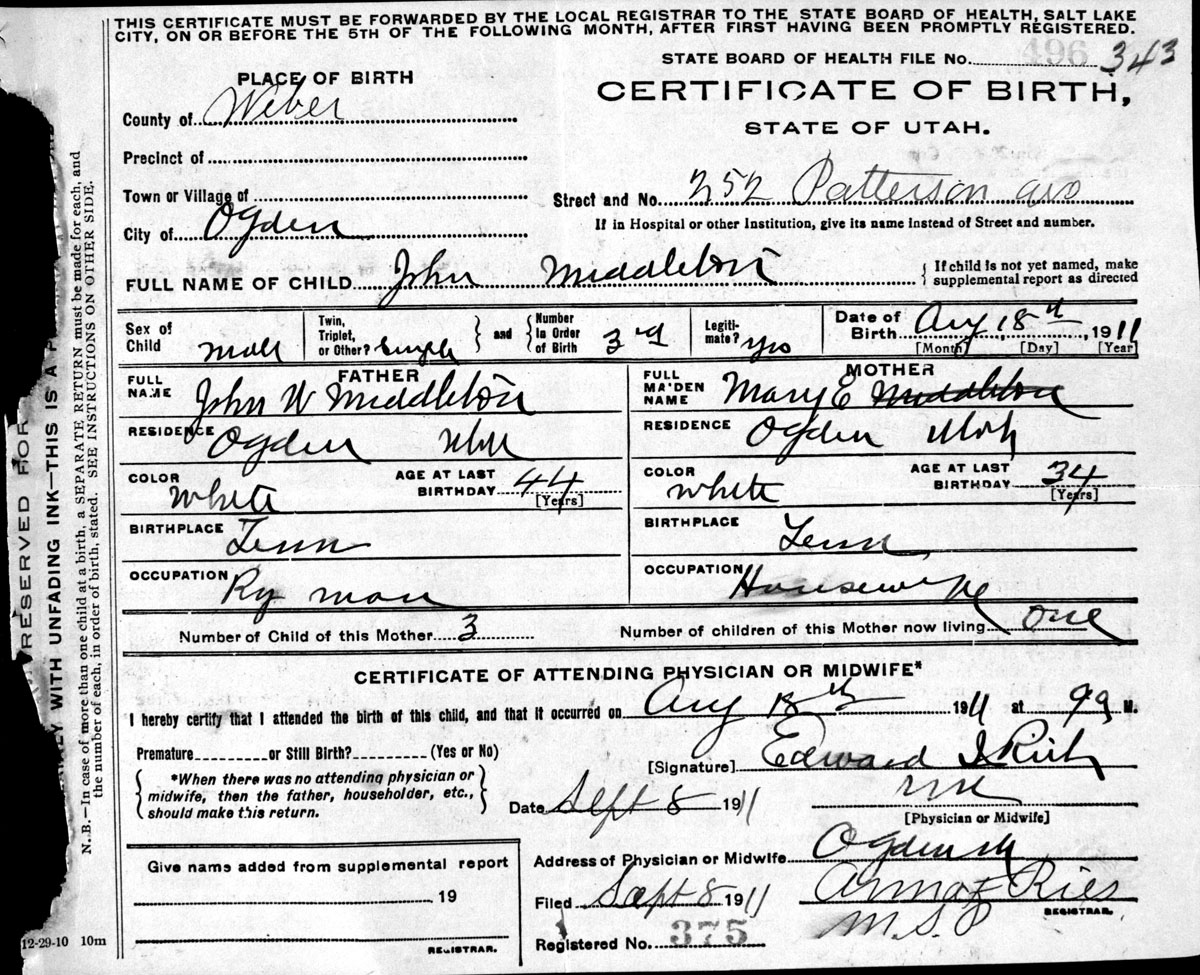 THIS CERTIFICATE MUST BE FORWARDED BY THE LOCAL REGISTRAR TO THE STATE BOARD OF HEALTH, SALT LAKE
CITY, ON OR BEFORE THE 5TH OF THE FOLLOWING MONTH, AFTER FIRST HAVING BEEN PROMPTLY REGISTERED.
STATE BOARD OF HEALTH FILE No. 496 343
PLACE OF BIRTH
CERTIFICATE OF BIRTH,
STATE OF UTAH.
County of Weber
Precinct of
Town or Village of
Street and No. 252 Patterson ave
City of Ogden
If in Hospital or other Institution, give its name instead of Street and number.
FULL NAME OF CHILD John Middleton
If child is not yet named, make
supplemental report as directed
Sex of Child Male
Twin, Triplet, or Other? Single
and
Number in Order of Birth 3rd
Legiti-mate? yes
Date of Birth Aug 18th 1911
[Month] [Day] [Year]
FATHER
FULL NAME John W Middleton
RESIDENCE Ogden Utah
COLOR White
AGE AT LAST BIRTHDAY 44
[Years]
BIRTHPLACE Tenn
OCCUPATION Ry man
MOTHER
FULL MAIDEN NAME Mary E Middleton
RESIDENCE Ogden Utah
COLOR White
AGE AT LAST BIRTHDAY 34
[Years]
BIRTHPLACE Tenn
OCCUPATION Housewife
Number of Child of this Mother 3
Number of children of this Mother now living one
CERTIFICATE OF ATTENDING PHYSICIAN OR MIDWIFE*
I hereby certify that I attended the birth of this child, and that it occurred on Aug 18th 1911 at 9 a M.
Premature or Still Birth? (Yes or No)
[Signature] Edward I Rich
*When there was no attending physician or
midwife, then the father, householder, etc.,
should make this return.
Date Sept 8 1911
[Physician or Midwife]
Give name added from supplemental report
19
REGISTRAR.
Address of Physician or Midwife Ogden
Filed Sept 8 1911
REGISTRAR.
Registered No. 375
RESERVED FOR
WITH UNFADING INK—THIS IS A
N. B.—In case of more than one child at a birth, a SEPARATE RETURN must be made for each, and
the number of each, in order of birth, stated. SEE INSTRUCTIONS ON OTHER SIDE.
12-29-10 10m